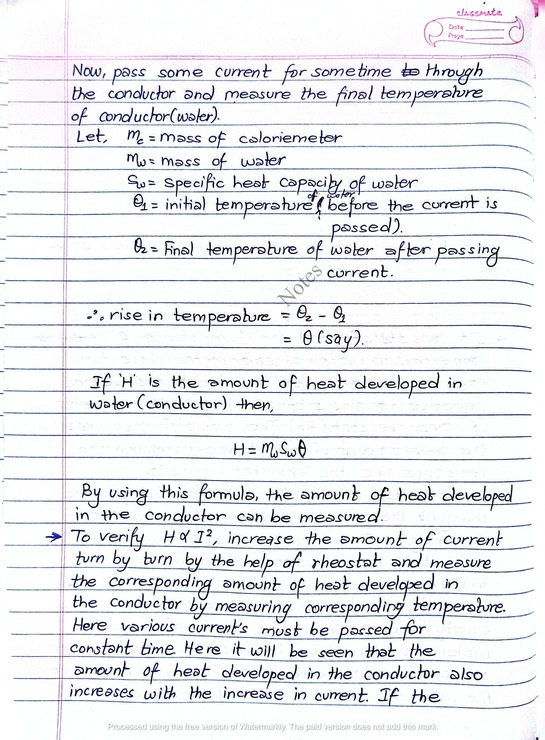 classmate
Date
Page
Now, pass some current for sometime through
the conductor and measure the final temperature
of conductor(water).
Let, m_c = mass of caloriemeter
m_w = mass of water
S_w = specific heat capacity of water
θ_1 = initial temperature of water (before the current is
passed).
θ_2 = Final temperature of water after passing
current.
Notes
∴ rise in temperature = θ_2 - θ_1
= θ (say).
If 'H' is the amount of heat developed in
water (conductor) then,
H = m_w S_w θ
By using this formula, the amount of heat developed
in the conductor can be measured.
→ To verify H ∝ I², increase the amount of current
turn by turn by the help of rheostat and measure
the corresponding amount of heat developed in
the conductor by measuring corresponding temperature.
Here various current's must be passed for
constant time. Here it will be seen that the
amount of heat developed in the conductor also
increases with the increase in current. If the
Processed using the free version of Watermarkly. The paid version does not add this mark.